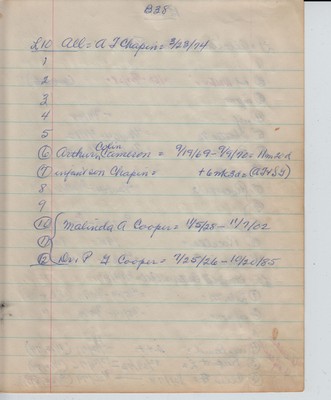 B38
£10 All = A J Chapin = 3/23/74
1
2
3
4
5
⑥ Arthur Colin Jameson = 9/19/69 - 9/9/40=
⑦ infant son Chapin = + 6mk3d=
8
9
⑩ Malinda A Cooper = 11/5/28 - 11/7/02
⑪
⑫ Dr. P G Cooper = 7/25/26 - 10/20/85